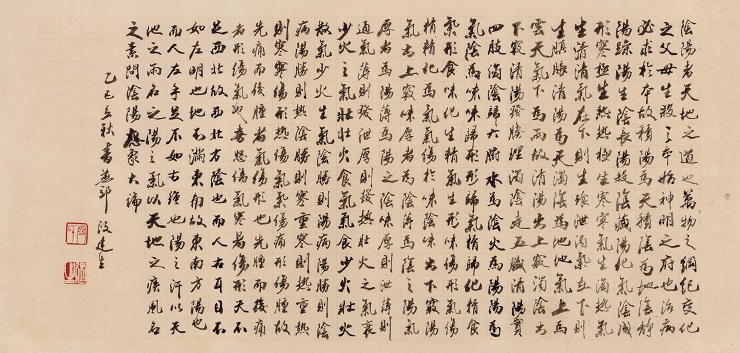 陰陽者天地之道也萬物之綱紀變化
之父母生殺之本始神明之府也治病
必求於本故積陽為天積陰為地陰靜
陽躁陽生陰長陽殺陰藏陽化氣陰成
形寒極生熱熱極生寒寒氣生濁熱氣
生清清氣在下則生飧泄濁氣在上則
生䐜脹清陽為天濁陰為地地氣上為
雲天氣下為雨故清陽出上竅濁陰出
下竅清陽發腠理濁陰走五臟清陽實
四肢濁陰歸六腑水為陰火為陽陽為
氣陰為味味歸形形歸氣氣歸精精食
氣形食味化生精氣生形味傷形氣傷
精精化為氣氣傷於味陰味出下竅陽
氣出上竅味厚者為陰薄為陰之陽氣
厚者為陽薄為陽之陰味厚則泄薄則
通氣薄則發泄厚則發熱壯火之氣衰
少火之氣壯壯火食氣氣食少火壯火
散氣少火生氣陰勝則陽病陽勝則陰
病陽勝則熱陰勝則寒重寒則熱重熱
則寒寒傷形熱傷氣氣傷痛形傷腫故
先痛而後腫者氣傷形也先腫而後痛
者形傷氣也喜怒傷氣寒暑傷形天不
足西北故西北方陰也而人右耳目不
如左明也地不滿東南故東南方陽也
而人左手足不如右強也陽之汗以天
地之雨名之陽之氣以天地之疾風名
之素問陰陽應象大論
乙巳立秋書